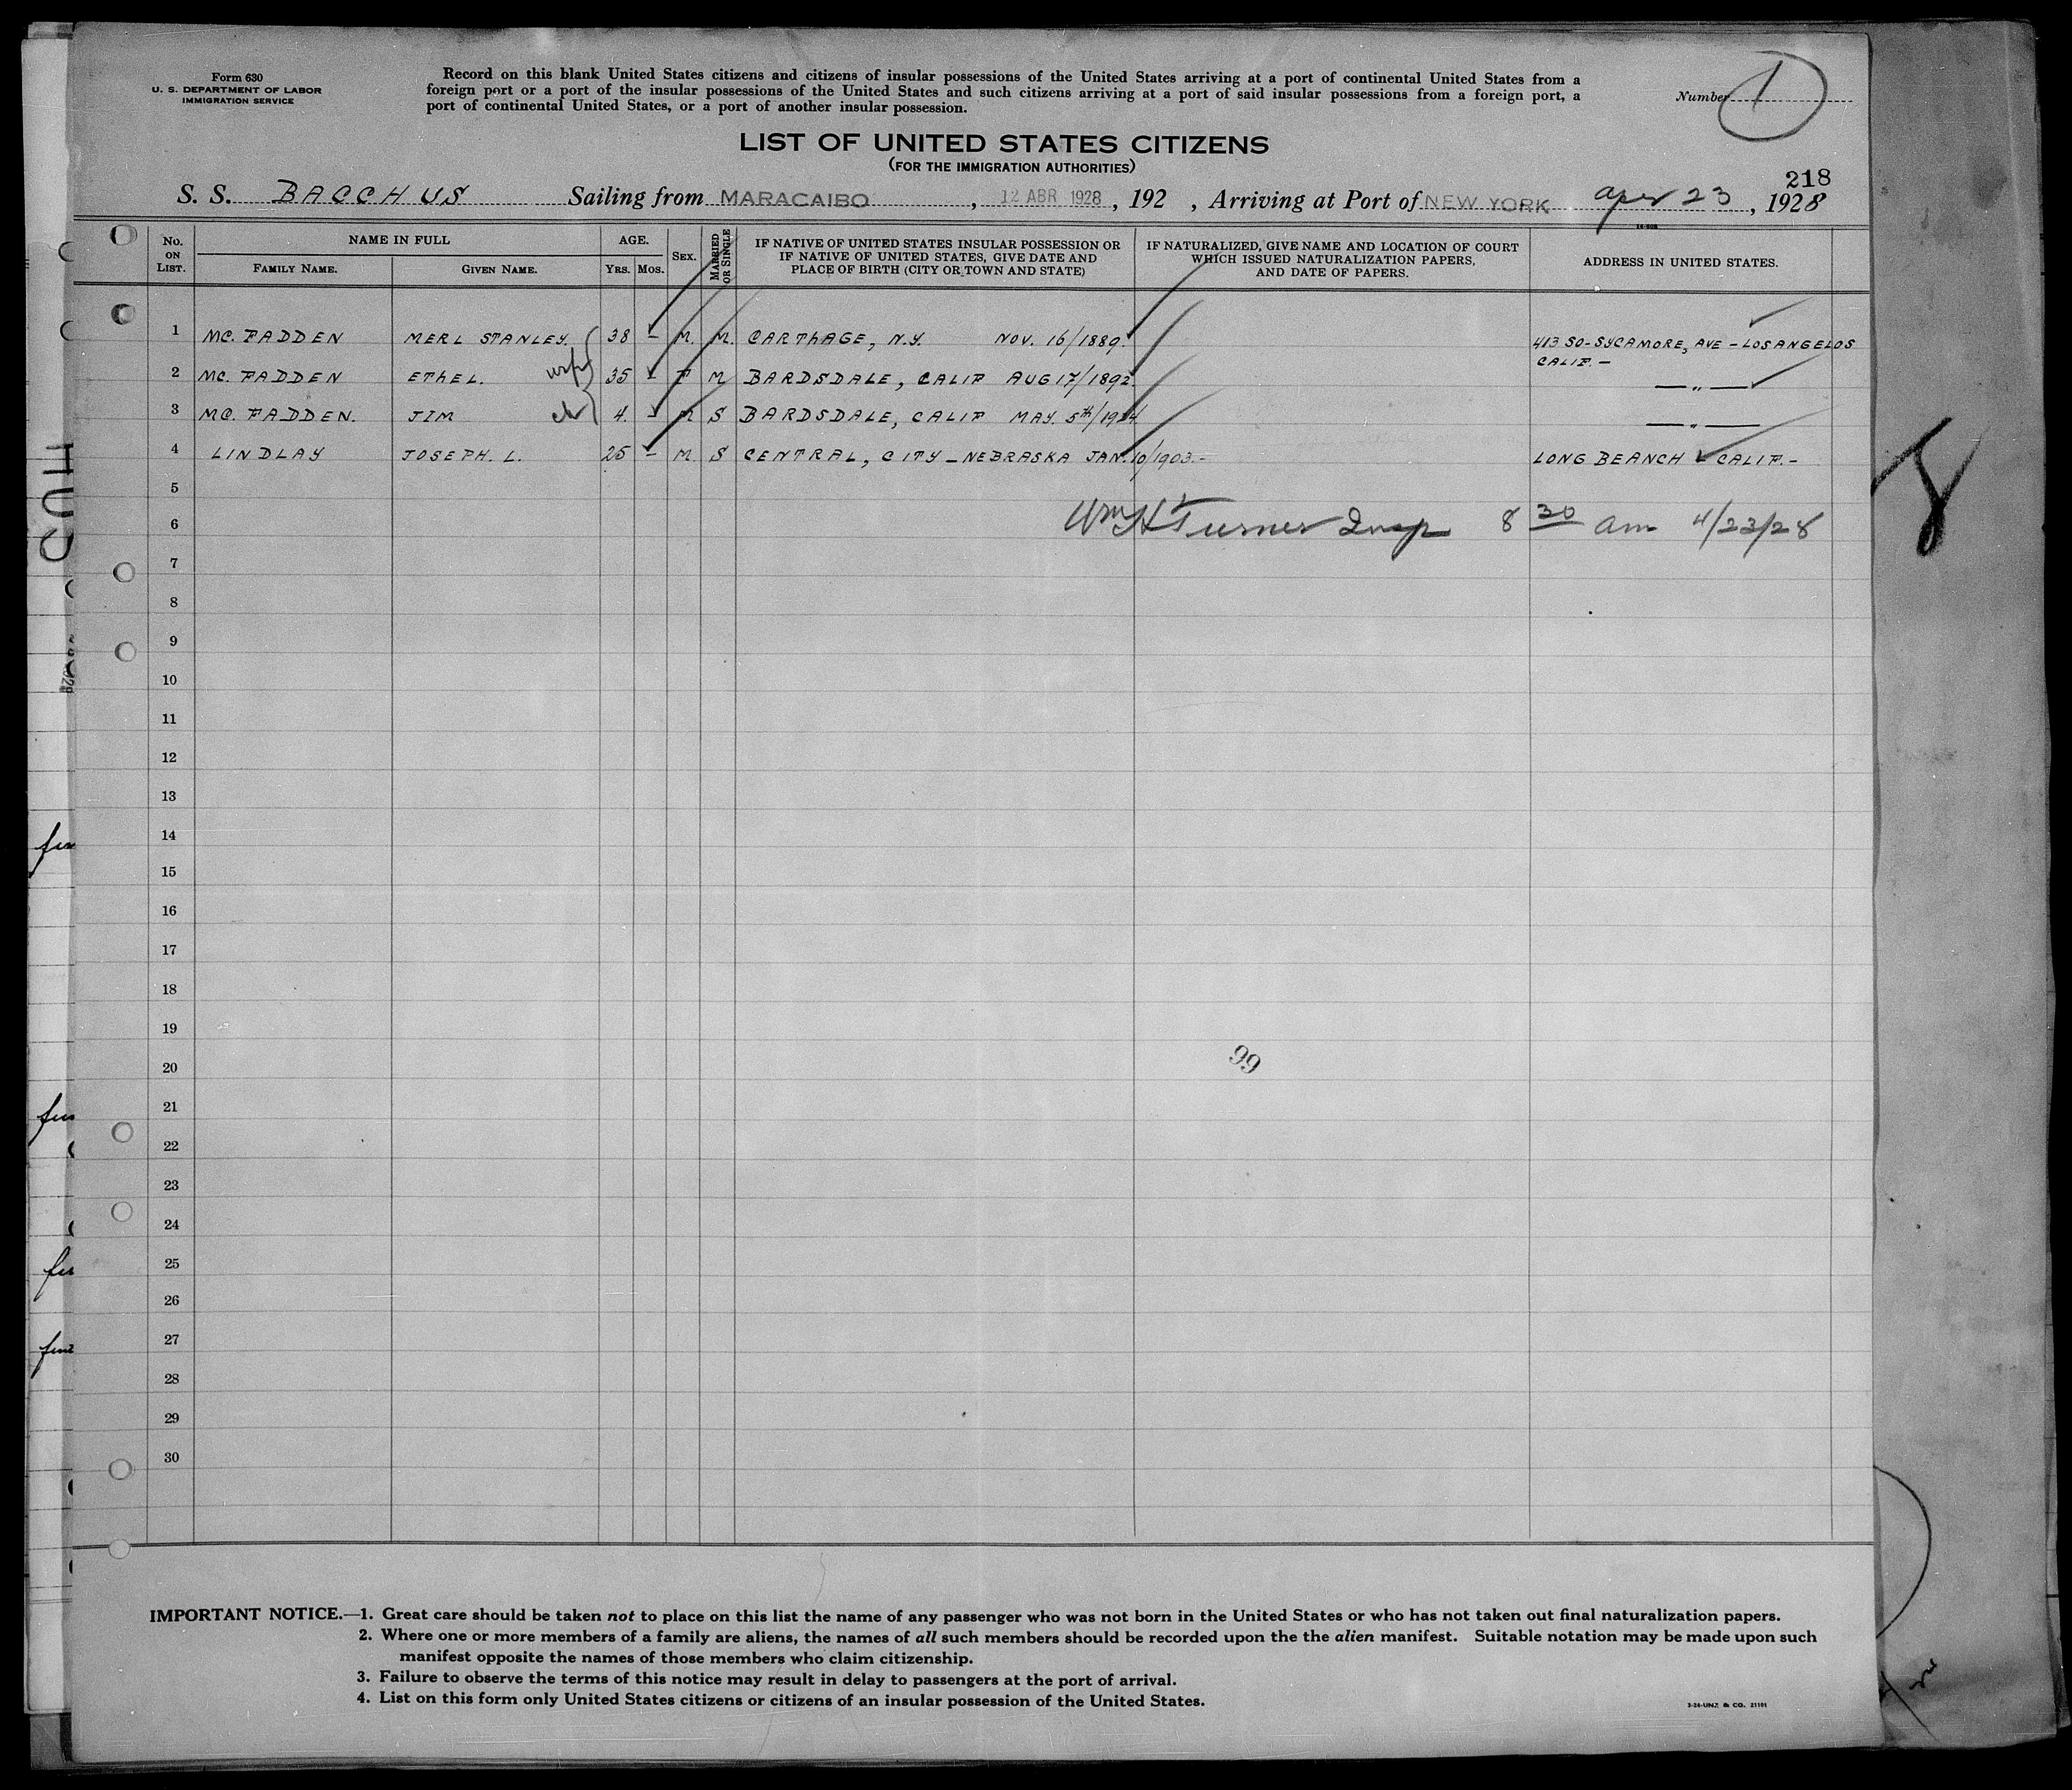 Form 630
U. S. DEPARTMENT OF LABOR
IMMIGRATION SERVICE
Record on this blank United States citizens and citizens of insular possessions of the United States arriving at a port of continental United States from a
foreign port or a port of the insular possessions of the United States and such citizens arriving at a port of said insular possessions from a foreign port, a
port of continental United States, or a port of another insular possession.
Number 1
LIST OF UNITED STATES CITIZENS
(FOR THE IMMIGRATION AUTHORITIES)
218
S. S. BACCHUS Sailing from MARACAIBO, 12 ABR 1928, 192 , Arriving at Port of NEW YORK Apr 23, 1928
No. ON LIST. NAME IN FULL FAMILY NAME. GIVEN NAME. AGE. YRS. MOS. SEX. MARRIED OR SINGLE
IF NATIVE OF UNITED STATES INSULAR POSSESSION OR
IF NATIVE OF UNITED STATES, GIVE DATE AND
PLACE OF BIRTH (CITY OR TOWN AND STATE)
IF NATURALIZED, GIVE NAME AND LOCATION OF COURT
WHICH ISSUED NATURALIZATION PAPERS,
AND DATE OF PAPERS.
ADDRESS IN UNITED STATES.
1 MC. FADDEN MERL STANLEY. 38 – M. M. CARTHAGE, N.Y. NOV. 16/1889. 413 SO-SYCAMORE, AVE – LOS ANGELOS
CALIF. –
2 MC. FADDEN ETHEL. wife 35 – F M BARDSDALE, CALIF AUG 17/1892. — „ —
3 MC. FADDEN. JIM ch 4. – M S BARDSDALE, CALIF MAY. 5th/1924 — „ —
4 LINDLAY JOSEPH. L. 25 – M. S CENTRAL, CITY – NEBRASKA JAN. 10/1903. – LONG BEANCH – CALIF. –
5
6 Wm H Turner Insp 8 30 am 4/23/28
7
8
9
10
11
12
13
14
15
16
17
18
19
20
99
21
22
23
24
25
26
27
28
29
30
IMPORTANT NOTICE.—1. Great care should be taken not to place on this list the name of any passenger who was not born in the United States or who has not taken out final naturalization papers.
2. Where one or more members of a family are aliens, the names of all such members should be recorded upon the the alien manifest. Suitable notation may be made upon such
manifest opposite the names of those members who claim citizenship.
3. Failure to observe the terms of this notice may result in delay to passengers at the port of arrival.
4. List on this form only United States citizens or citizens of an insular possession of the United States.
8